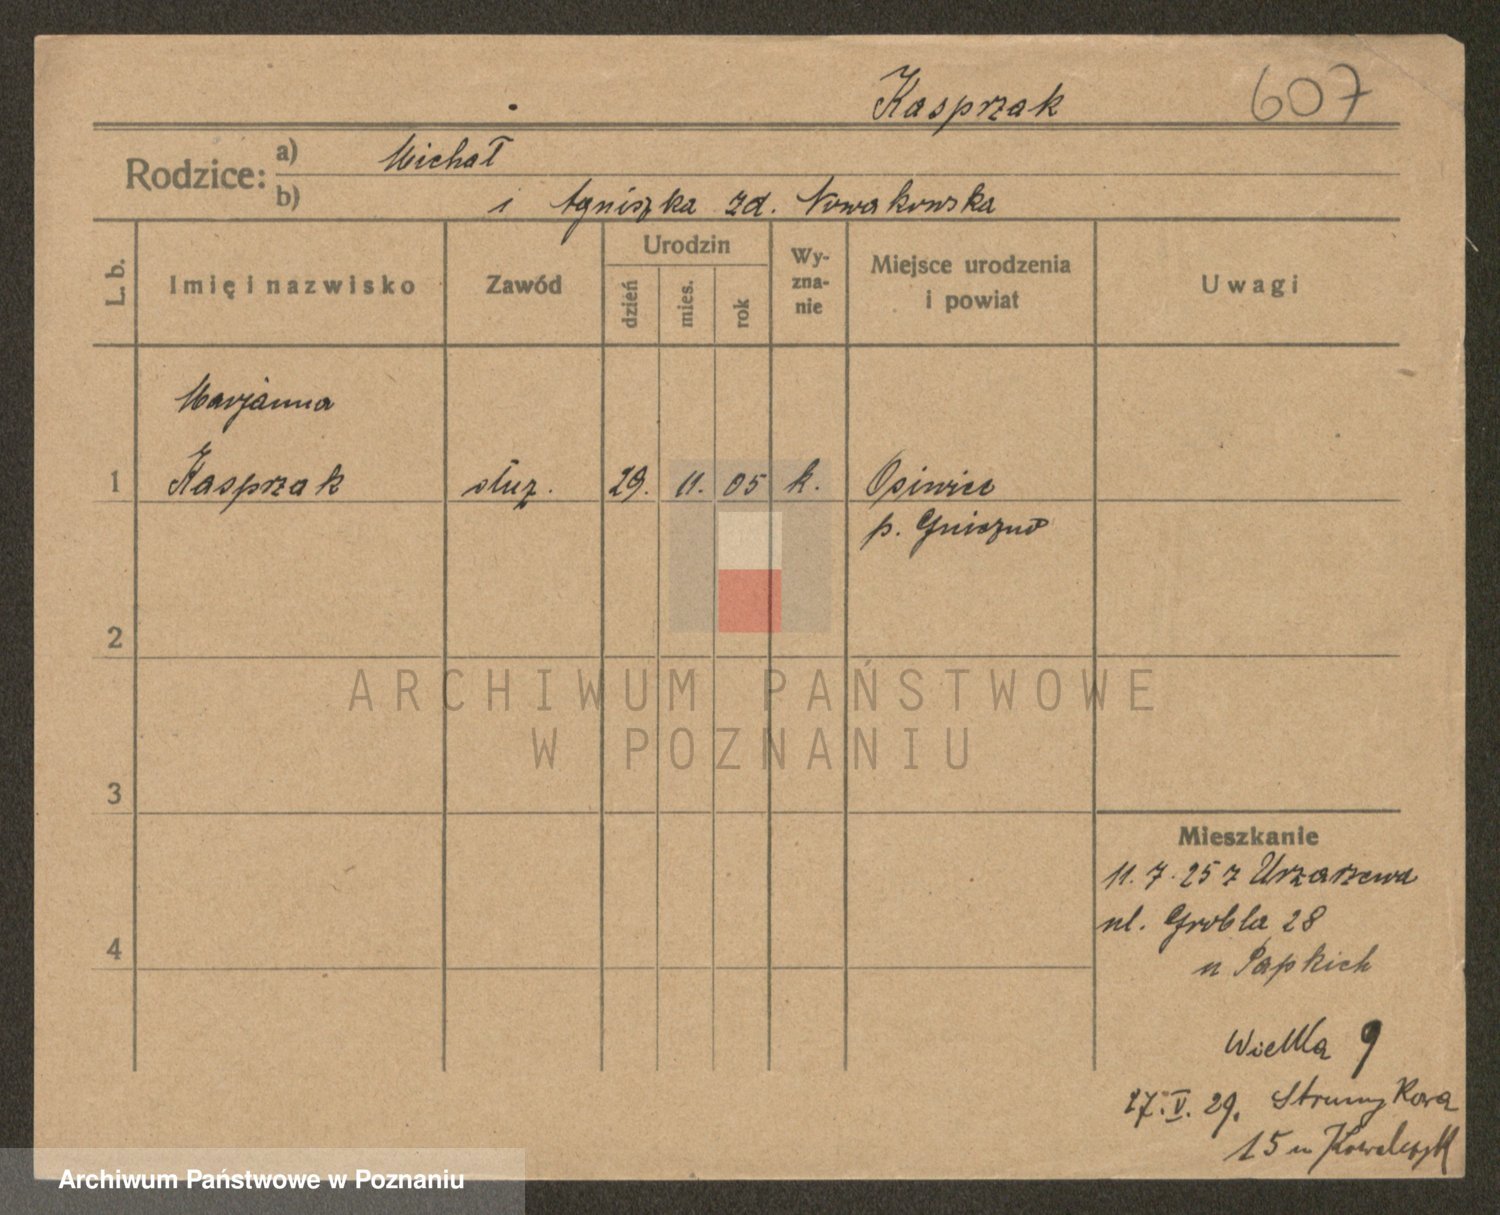 Kasprzak 607
Rodzice: a) Michał
b) i Agniszka zd. Nowakowska
L. b. Imię i nazwisko Zawód Urodzin dzień mies. rok Wyznanie Miejsce urodzenia i powiat Uwagi
Marjanna
1 Kasprzak służ. 29. 11. 05 k. Osiniec
p. Gniezno
2
ARCHIWUM PAŃSTWOWE
W POZNANIU
3
Mieszkanie
11. 7. 25 z Urzarzewa
ul. Grobla 28
4
u Papkich
Wielka 9
27. V. 29. Strumykowa
15 u Kowalczyk
Archiwum Państwowe w Poznaniu